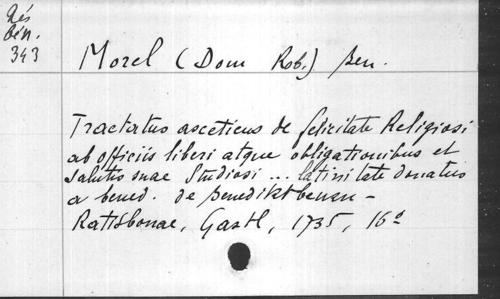 Rés
bén.
343
Morel (Dom Rob.) Ben.
Tractatus asceticus de felicitate Religiosi
ab officiis liberi atque obligationibus et
salutis suae studiosi ... latinitate donatus
a bened. de Benediktbeuen -
Ratisbonae, Gastl, 1735, 16°